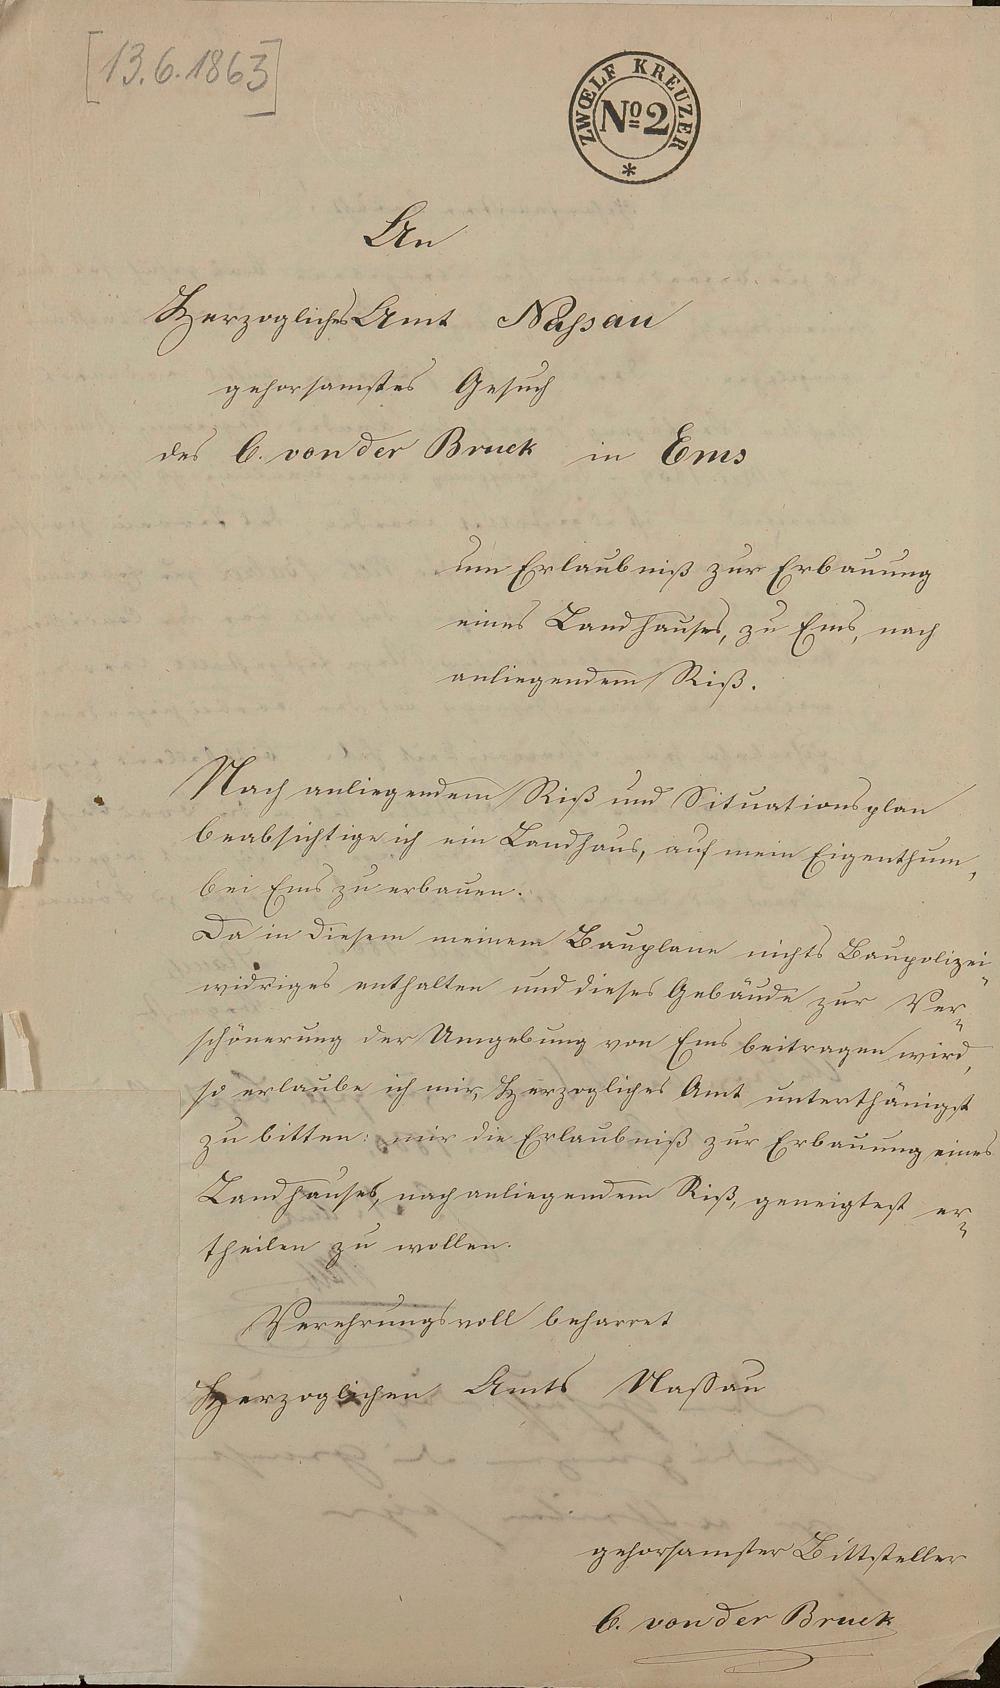 [13.6.1863]
ZWŒLF KREUZER
No 2
An
Herzogliches Amt Nassau
gehorsamstes Gesuch
des C. von der Bruck in Ems
um Erlaubniß zur Erbauung
eines Landhauses, zu Ems, nach
anliegendem Riß.
Nach anliegendem Riß und Situationsplan
beabsichtige ich ein Landhaus, auf mein Eigenthum,
bei Ems zu erbauen.
Da in diesem meinem Bauplane nichts Baupolizei-
widriges enthalten und dieses Gebäude zur Ver-
schönerung der Umgebung von Ems beitragen wird,
so erlaube ich mir, Herzogliches Amt unterthänigst
zu bitten: mir die Erlaubniß zur Erbauung eines
Landhauses, nach anliegendem Riß, geneigtest er-
theilen zu wollen.
Verehrungsvoll beharret
Herzoglichen Amts Nassau
gehorsamster Bittsteller
C. von der Bruck